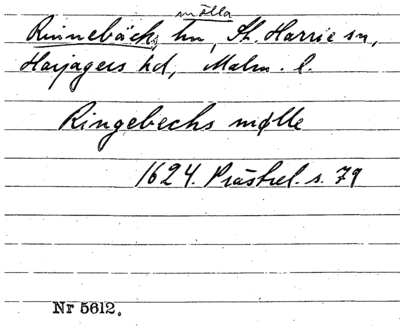 mölla
Rinnebäcks hn, St. Harrie sn,
Harjagers hd, Malm. l.
Ringebechs mølle
1624. Prästrel. s. 79
Nr 5612.